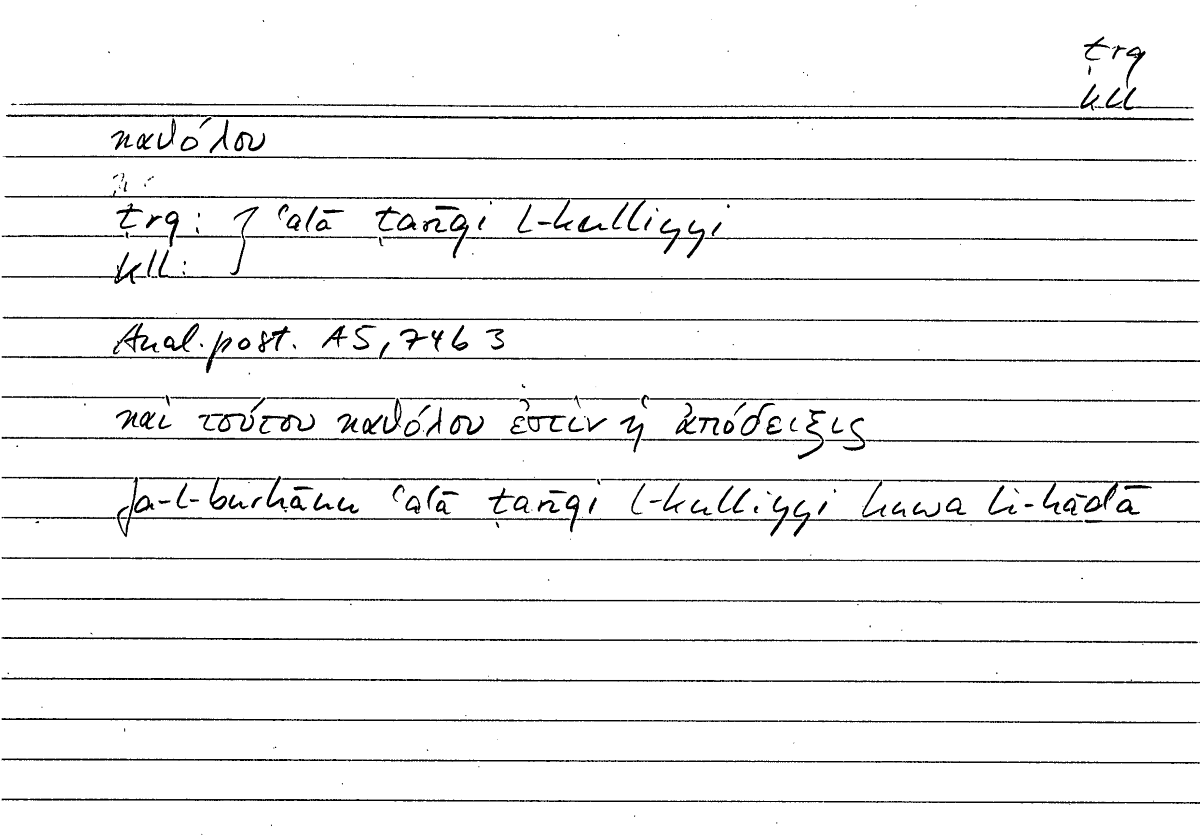 ṭrq
kll
καθόλου
ṭrq: } ʿalā ṭarīqi l-kulliyyi
kll:
Anal. post. A5, 74b 3
καὶ τούτου καθόλου ἐστὶν ἡ ἀπόδειξις
fa-l-burhānu ʿalā ṭarīqi l-kulliyyi huwa li-hāḏā